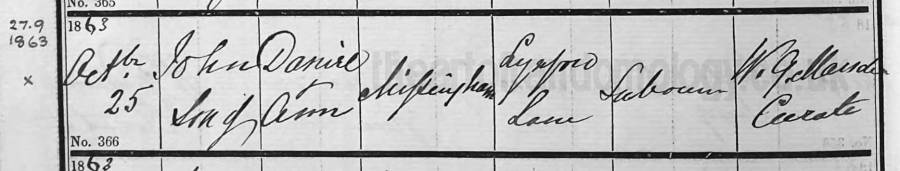 No. 365
27.9
1863
×
1863
Octbr
25
John
Son of
Daniel
+
Ann
Missingham
Lane
Labourer
W. G. Marsden
Curate
No. 366
1863